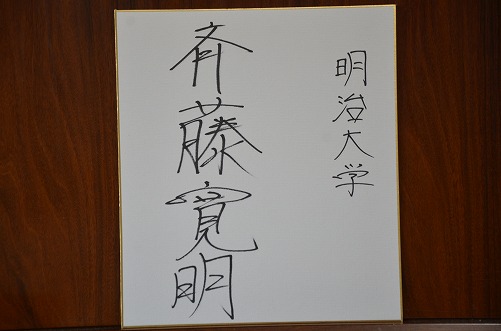 明治大学
斉藤寛明